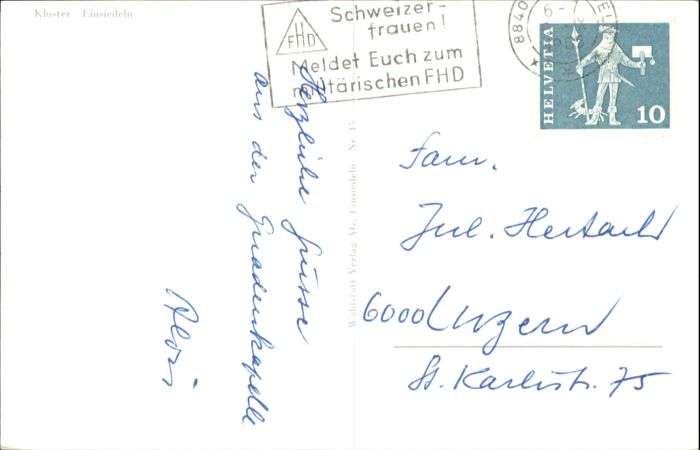 Kloster Einsiedeln
Schweizer-
frauen!
FHD
Meldet Euch zum
militärischen FHD
8840
6-7
HELVETIA
10
Herzliche Grüsse
aus der Gnadenkapelle
Alois
Waldstatt Verlag AG. Einsiedeln Nr.
Fam.
Jul. Hertach
6000 Luzern
St. Karlistr. 75